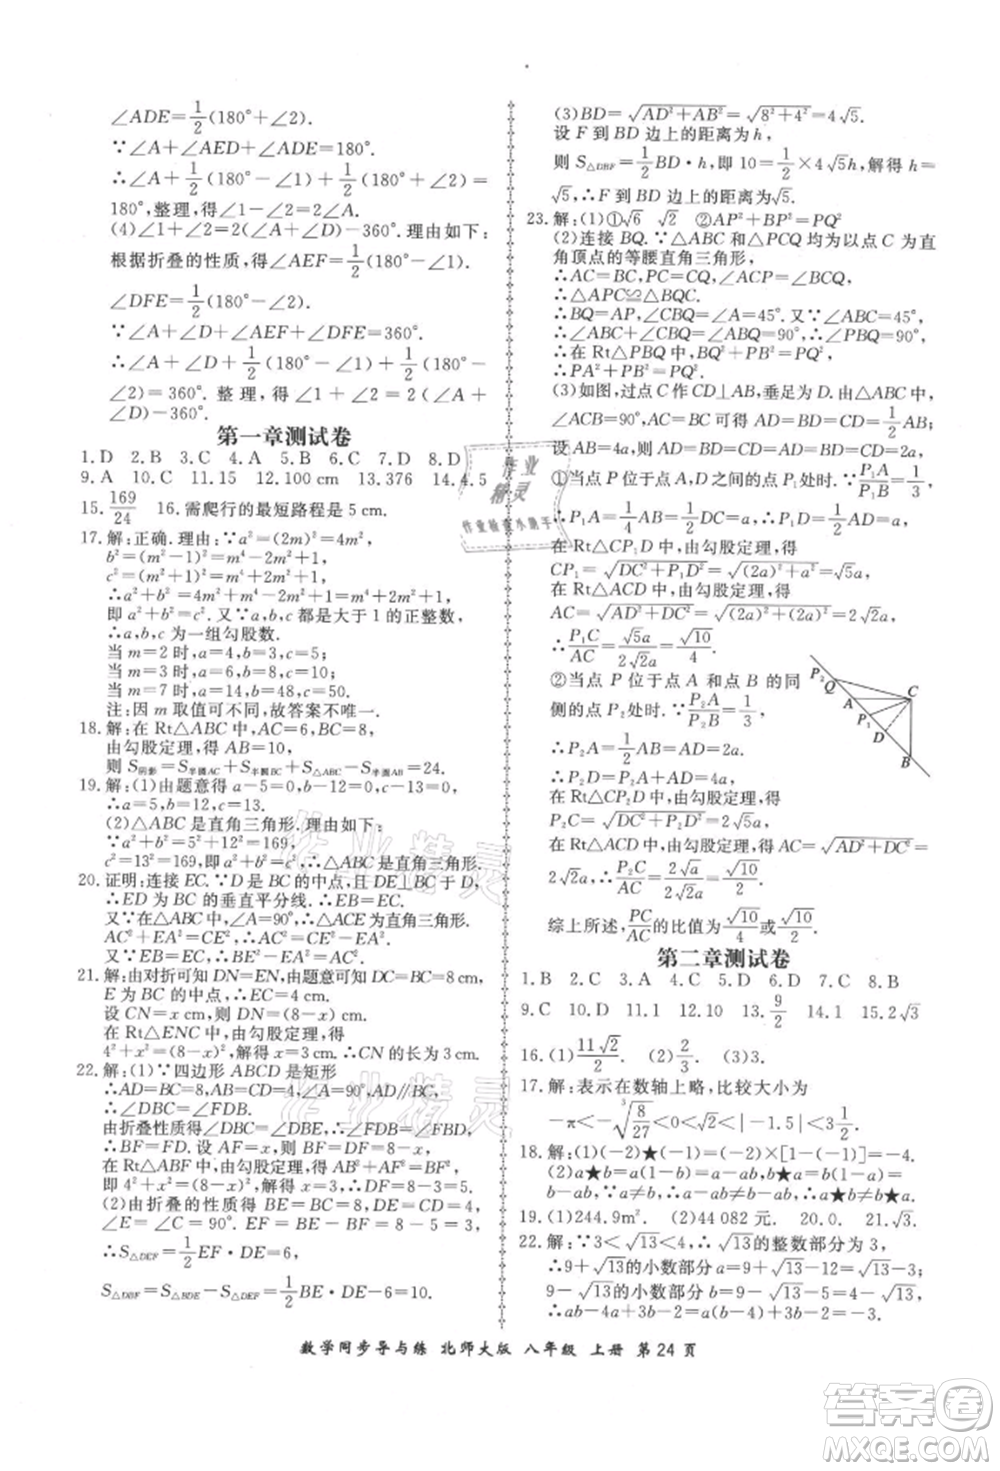 ∠ADE=1/2(180°+∠2).
∵∠A+∠AED+∠ADE=180°.
∴∠A+1/2(180°-∠1)+1/2(180°+∠2)=
180°,整理,得∠2=∠1-2∠A.
(4)∠1+∠2=2(∠A+∠D)-360°.理由如下:
根据折叠的性质,得∠AEF=1/2(180°-∠1).
∠DFE=1/2(180°-∠2).
∵∠A+∠D+∠AEF+∠DFE=360°.
∴∠A+∠D+1/2(180°-∠1)+1/2(180°-
∠2)=360°.整理,得∠1+∠2=2(∠A+
∠D)-360°.
第一章测试卷
1.D 2.B 3.C 4.A 5.B 6.C 7.D 8.D
9.A 10.C 11.15 12.100 cm 13.376 14.4.5
15.169/24 16.需爬行的最短路程是5 cm.
17.解:正确.理由:∵a²=(2m)²=4m²,
b²=(m²-1)²=m⁴-2m²+1,
c²=(m²+1)²=m⁴+2m²+1,
∴a²+b²=4m²+m⁴-2m²+1=m⁴+2m²+1,
即a²+b²=c².又∵a,b,c都是大于1的正整数,
∴a,b,c为一组勾股数.
当m=2时,a=4,b=3,c=5;
当m=3时,a=6,b=8,c=10;
当m=7时,a=14,b=48,c=50.
注:因m取值可不同,故答案不唯一.
18.解:在Rt△ABC中,AC=6,BC=8,
由勾股定理,得AB=10,
则S阴影=S半圆AC+S半圆BC+S△ABC-S半圆AB=24.
19.解:(1)由题意得a-5=0,b-12=0,c-13=0.
∴a=5,b=12,c=13.
(2)△ABC是直角三角形.理由如下:
∵a²+b²=5²+12²=169,
c²=13²=169,即a²+b²=c²,∴△ABC是直角三角形.
20.证明:连接EC.∵D是BC的中点,且DE⊥BC于D,
∴ED为BC的垂直平分线.∴EB=EC.
又∵在△ABC中,∠A=90°,∴△ACE为直角三角形.
AC²+AE²=EC².∴AC²=EC²-AE².
又∵EB=EC,∴BE²-AE²=AC².
21.解:由对折可知DN=EN,由题意可得DC=BC=8 cm,
E为BC的中点,∴EC=4 cm.
设CN=x cm,则DN=(8-x)cm,∴EN=(8-x)cm.
在Rt△ENC中,由勾股定理得
4²+x²=(8-x)²,解得x=3.∴CN的长为3 cm.
22.解:(1)∵四边形ABCD是矩形
∴AD=BC=8,∠A=90°,AD∥BC,
∴∠DBC=∠FDB.
由折叠性质得∠DBC=∠DBF,∴∠DBF=∠FDB.
∴BF=FD.设AF=x,则BF=FD=8-x.
在Rt△ABF中,由勾股定理得
4²+x²=(8-x)²,解得x=3,∴AF=3.
(2)由折叠的性质得BE=BC=8,DE=CD=4,
∠E=∠C=90°. EF=BE-BF=8-5=3,
∴S△DEF=1/2EF·DE=6,
S△DBF=S△BDE-S△DEF=1/2BE·DE-6=10.
(3)BD=√(AD²+AB²)=√(8²+4²)=4√5.
设F到BD边上的距离为h,
则S△DBF=1/2BD·h,即10=1/2×4√5h,解得h=
√5,∴F到BD边上的距离为√5.
23.解:(1)①√6 √2 ②AP²+BP²=PQ²
(2)连接BQ.∵△ABC和△PCQ均为以点C为直
角顶点的等腰直角三角形,
∴AC=BC,PC=CQ,∠ACP=∠BCQ.
∴△APC≌△BQC.
∴BQ=AP,∠CBQ=∠A=45°.又∵∠ABC=45°,
∴∠ABC+∠CBQ=∠ABQ=90°,∴∠PBQ=90°,
∴在Rt△PBQ中,BQ²+PB²=PQ²,
∴PA²+PB²=PQ².
(3)如图,过点C作CD⊥AB,垂足为D.由△ABC中
∠ACB=90°,AC=BC可得AD=BD=CD=1/2AB.
设AB=4a,则AD=BD=CD=2a.
①当点P位于点A、D之间的点P₁处时.∵P₁A/P₁B=1/3
∴P₁A=1/4AB=a,∴P₁D=a.
在Rt△CP₁D中,由勾股定理,得
CP₁=√(DC²+P₁D²)=√((2a)²+a²)=√5a.
在Rt△ACD中,由勾股定理,得
AC=√(AD²+DC²)=√((2a)²+(2a)²)=2√2a.
∴P₁C/AC=√5a/2√2a=√10/4.
②当点P位于点A和点B的同
侧的点P₂处时.∵P₂A/P₂B=1/3,
∴P₂A=1/2AB=2a.
∴P₂D=P₂A+AD=4a.
在Rt△CP₂D中,由勾股定理,得
P₂C=√(DC²+P₂D²)=2√5a,
在Rt△ACD中,由勾股定理,得AC=√(AD²+DC²)=
2√2a,∴P₂C/AC=2√5a/2√2a=√10/2.
综上所述,PC/AC的比值为√10/4或√10/2.
P₂ Q A P₁ D B C
第二章测试卷
1.B 2.C 3.C 4.D 5.D 6.D 7.C 8.B
9.C 10.D 11.1 12.10 13.9/2 14.2 15.2√3
16.(1)11√2/2. (2)2/3. (3)3.
17.解:表示在数轴上略,比较大小为
-π<-∛(8/27)<0<√2<|-1.5|<3 1/2.
18.解:(1)(-2)★(-1)=(-2)×[1-(-1)]=-4.
(2)a★b=a(1-b)=a-ab,b★a=b(1-a)=
b-ab,∵a≠b,∴a-ab≠b-ab,∴a★b≠b★a.
19.(1)244.9m². (2)44 082元. 20.0. 21.√3.
22.解:∵3<√13<4,∴√13的整数部分为3,
∴9+√13的小数部分a=9+√13-12=√13-3,
9-√13的小数部分b=9-√13-5=4-√13,
∴ab-4a+3b-2=(√13-3)(4-√13)-4(√13-
数学同步导与练 北师大版 八年级 上册 第24页
作业精灵
作业检查小助手
作业精灵
作业精灵
答案圈
MXQE.COM